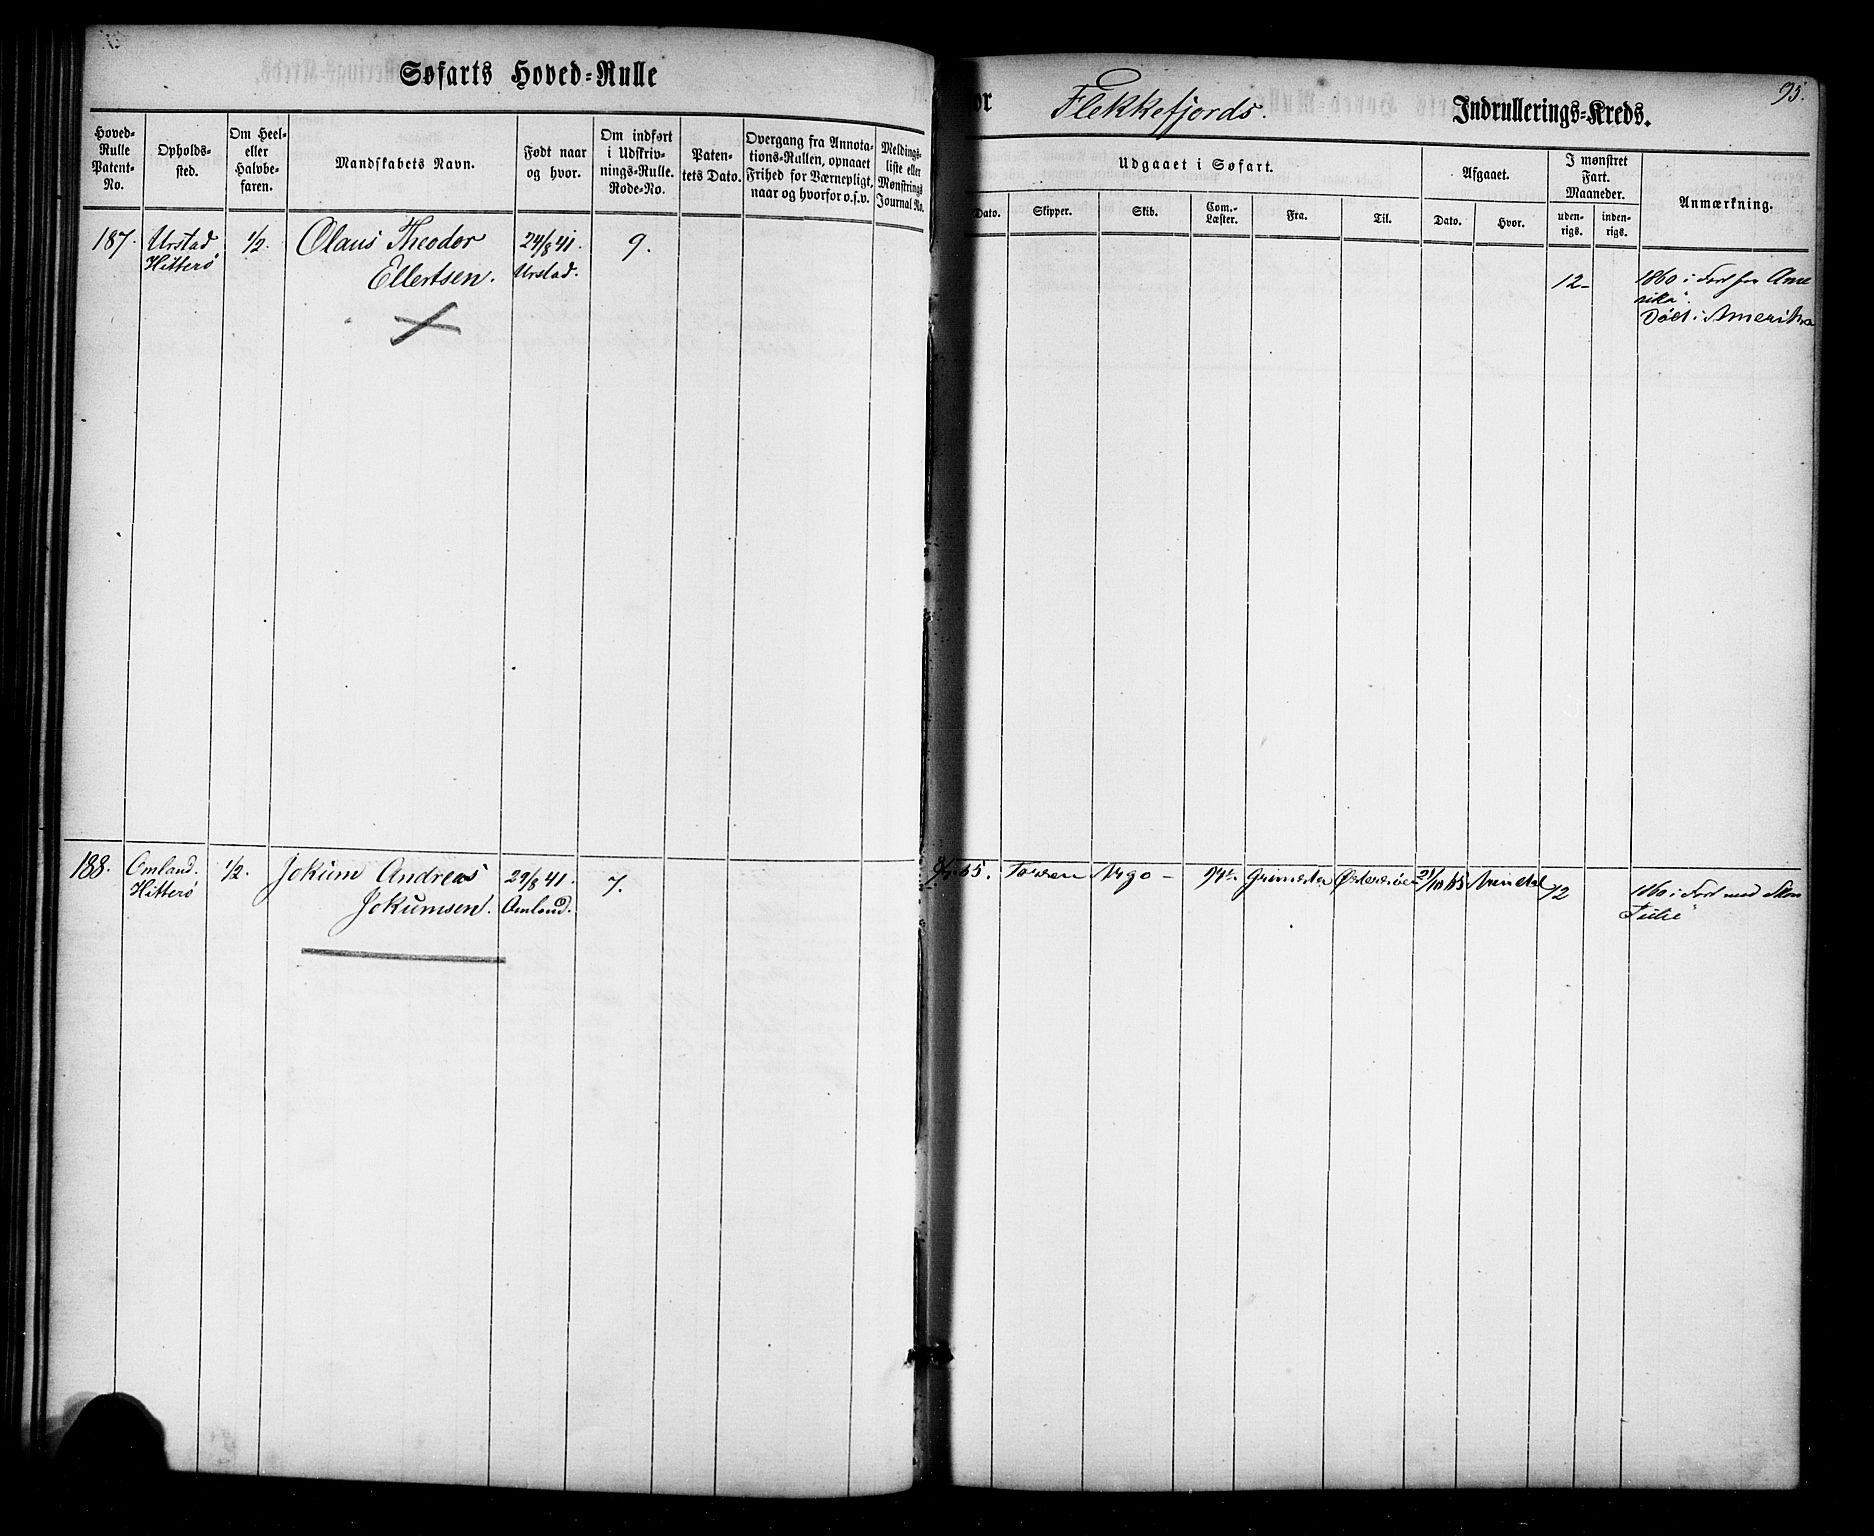 Søfarts Hoved-Rulle
for Flekkefjords. Indrullerings-Kreds.
95.
Hoved-Rulle Patent-No.
Opholds-sted.
Om Heel- eller Halvbe-faren.
Mandskabets Navn.
Født naar og hvor.
Om indført i Udskriv-nings-Rulle. Rode-No.
Paten-tets Dato.
Overgang fra Annota-tions-Rullen, opnaaet Frihed for Værnepligt, naar og hvorfor o.s.v.
Meldings-liste eller Mønstrings Journal No.
Udgaaet i Søfart.
Dato.
Skipper.
Skib.
Com.-Læster.
Fra.
Til.
Afgaaet.
Dato.
Hvor.
I mønstret Fart. Maaneder.
uden-rigs.
inden-rigs.
Anmærkning.
187. Urstad 1/2. Olaus Theodor 24/8 41. 9.
Hitterø Ellertsen. Urstad.
12 1860 i Fart fra Ame
rika".
Død i Amerika
188. Omland. 1/2. Jokum Andreas 29/8 41. 7.
Hitterø Jokumsen. Omland.
65. Argo - Grimstad Østersøen 21/10 65 Arendal 12 1860 i Fart med Skon